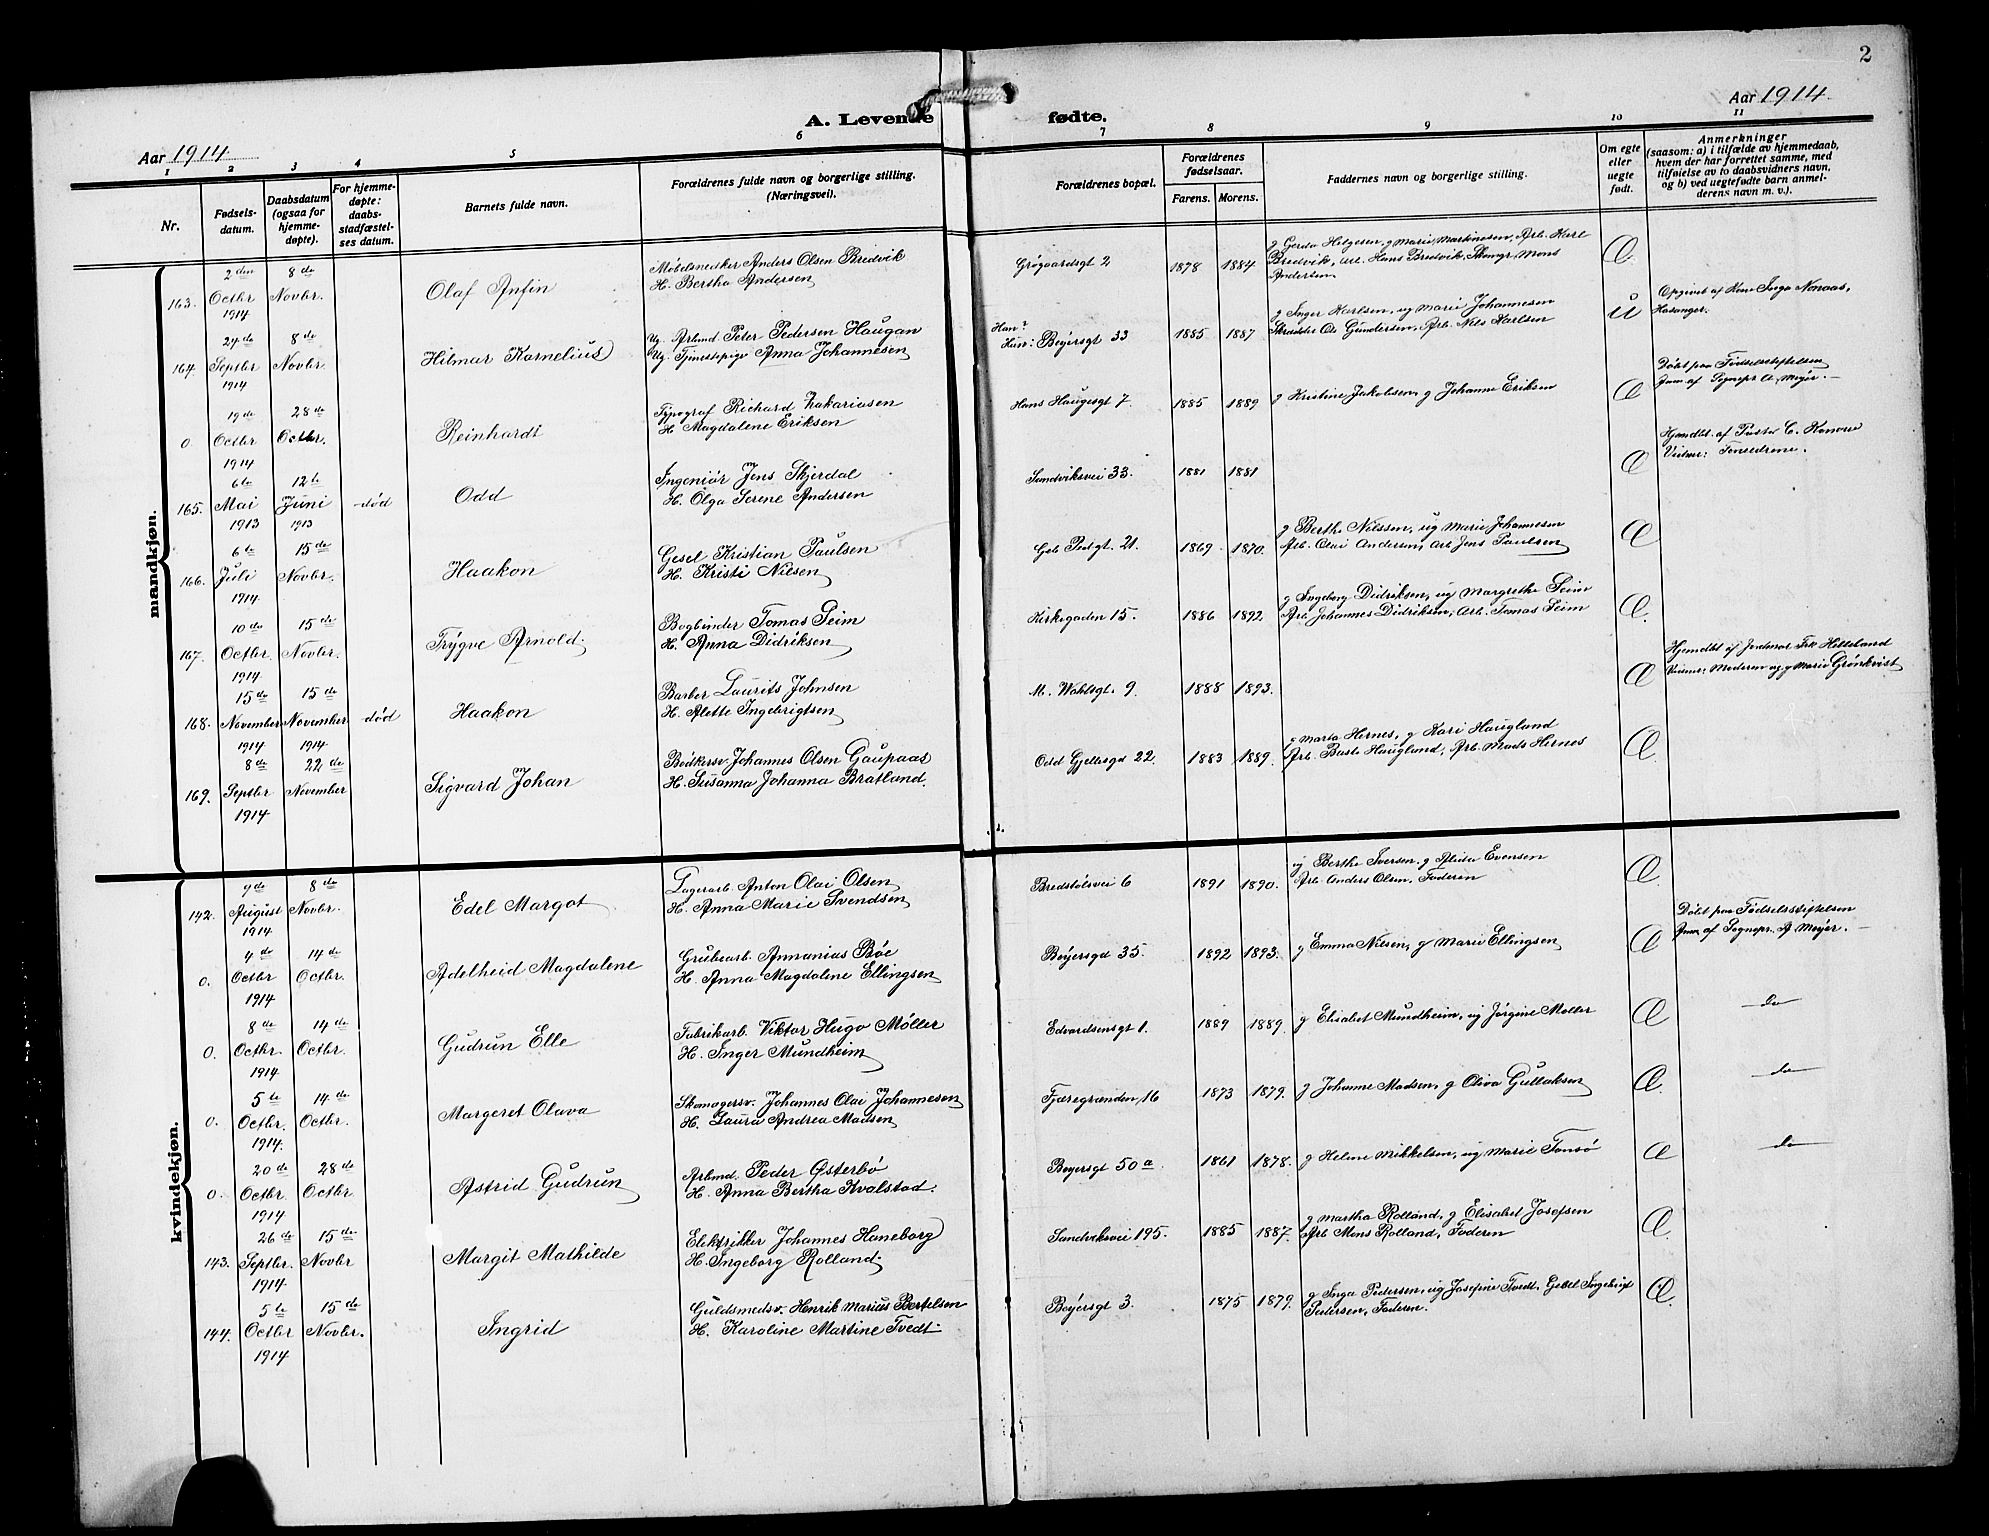 2
Aar 1914
A. Levende fødte.
Aar 1914.
1 2 3 4 5 6 7 8 9 10 11
Nr.
Fødsels-
datum.
Daabsdatum
(ogsaa for
hjemme-
døpte).
For hjemme-
døpte:
daabs-
stadfæstel-
ses datum.
Barnets fulde navn.
Forældrenes fulde navn og borgerlige stilling.
(Næringsvei).
Forældrenes bopæl.
Forældrenes
fødselsaar.
Farens. Morens.
Faddernes navn og borgerlige stilling.
Om egte
eller
uegte
født.
Anmerkninger
(saasom: a) i tilfælde av hjemmedaab,
hvem der har forrettet samme, med
tilføielse av to daabsvidners navn,
og b) ved uegtefødte barn anmel-
derens navn m. v.).
mandkjøn.
163. 2den Octbr 1914
8de Novbr.
Olaf Anfin
Møbelsnedker Anders Olsen Bredvik
H. Bertha Andersen
Grøgaardsgt 2
1878 1884
g Gerda Helgesen, g Marie Martinesen, Arb. Karl
Bredvik, Arb. Hans Bredvik, Mons
Andersen
Æ
164. 24de Septbr 1914
8de Novbr.
Hilmar Kornelius
Ug. Arbmd Peter Pedersen Haugan
Ug. Tjenestepige Anna Johannesen
Han?
Hun: Beyersgt 33
1885 1887
g Inger Karlsen, ug Marie Johannesen
Skrædder Ole Gundersen, Arb. Nils Karlsen
U
Opgivet af Kone Inga Nonaas,
0. 19de Octbr 1914
28de Octbr.
Reinhardt
Typograf Richard Zakariasen
H. Magdalene Eriksen
Hans Haugesgt 7.
1885 1889
g Kristine Jakobsen, g Johanne Eriksen
Æ
Døbt paa Fødselsstiftelsen
Anm. af Sognepr. A. Meyer. —
165. 6te Mai 1913
12te Juni 1913
død
Odd
Ingeniør Jens Skjerdal
H. Olga Serene Andersen
Sandviksvei 33.
1881 1881
Æ
Hjemdbt. af Pastor C. Konow
Vidner: Forældrene.
166. 6te Juli 1914
15de Novbr.
Haakon
Gesel Kristian Paulsen
H. Kristi Nielsen
21.
1869 1870.
g Berthe Nilssen, ug Marie Johannesen
Arb. Olai Andersen, Arb. Jens Paulsen
Æ
167. 10de Octbr. 1914
15de Novbr.
Trygve Arnold.
Bogbinder Tomas Seim
H. Anna Didriksen
Kirkegaden 15.
1886 1892
g Ingeborg Didriksen, ug Margrethe Seim
Arb. Johannes Didriksen, Arb. Tomas Seim
Æ.
168. 15de November 1914
15de November 1914
død
Haakon
Barber Laurits Johnsen
H. Alette Ingebrigtsen
M. Wahlsgt. 9
1888 1893.
Æ
Hjemdbt af Jordmor Frk Helleland
Vidner: Moderen og g Marie Grönkvist
169. 8de Septbr 1914
22de November
Sigvard Johan
Bødkersv. Johannes Olsen Gaupaas
H. Susanna Johanna Bratland.
Odd Gjellesgd 22
1883 1889.
g Marta Hernes, g Kari Haugland
Arb. Haugland, Arb. Mads Hernes
Æ
kvindekjøn.
142. 9de August 1914
8de Novbr.
Edel Margot
Lagerarb. Anton Olai Olsen
H. Anna Marie Svendsen
Bredstølsvei 6
1891 1890.
ug Berthe Iversen, g Alida Evensen
Arb. Anders Olsen, Faderen
Æ.
0. 4de Octbr 1914
14de Octbr.
Adelheid Magdalene
Grubearb. Annanias Bøe
H. Anna Magdalene Ellingsen
Beyersgd 35.
1892 1893.
g Emma Nilsen, g Marie Ellingsen
Æ
Døbt paa Fødselsstiftelsen
Anm. af Sognepr. A Meyer. —
0. 8de Octbr. 1914
14de Octbr.
Gudrun Elle
Fabrikarb. Viktor Hugo Møller
H. Inger Mundheim
Edvardsensgt 1.
1889 1889.
g Elisabet Mundheim, ug Jørgine Møller
Æ
do
0. 5te Octbr. 1914.
14de Octbr.
Margeret Olava
Skomagersv. Johannes Olai Johannesen
H. Laura Andrea Madsen
Fjæregrænden 16
1873 1879.
g Johanne Madsen, g Oliva Gullaksen
Æ.
do
0. 20de Octbr 1914
28de Octbr.
Astrid Gudrun
Arbmd. Peder Østerbø
H. Anna Bertha Kvalstad.
Beyersgt 50a.
1861 1878.
g Helene Mikkelsen, ug Marie Tonsø
Æ
do
143. 26de Septbr. 1914
15de Novbr
Margit Mathilde
Elektriker Johannes Haneborg
H. Ingeborg Rolland.
Sandviksvei 195.
1885 1887.
g Martha Rolland, g Elisabet Josefsen
Arb Mons Rolland, Faderen
Æ.
144. 5te Octbr 1914
15de Novbr.
Ingrid
Guldsmedsv. Henrik Marius Bertelsen
H. Karoline Martine Tvedt.
Beyersgt 3.
1875 1879.
g Inga Pedersen, ug Josefine Tvedt, Gesel Ingebrigt
Pedersen, Faderen.
Æ.